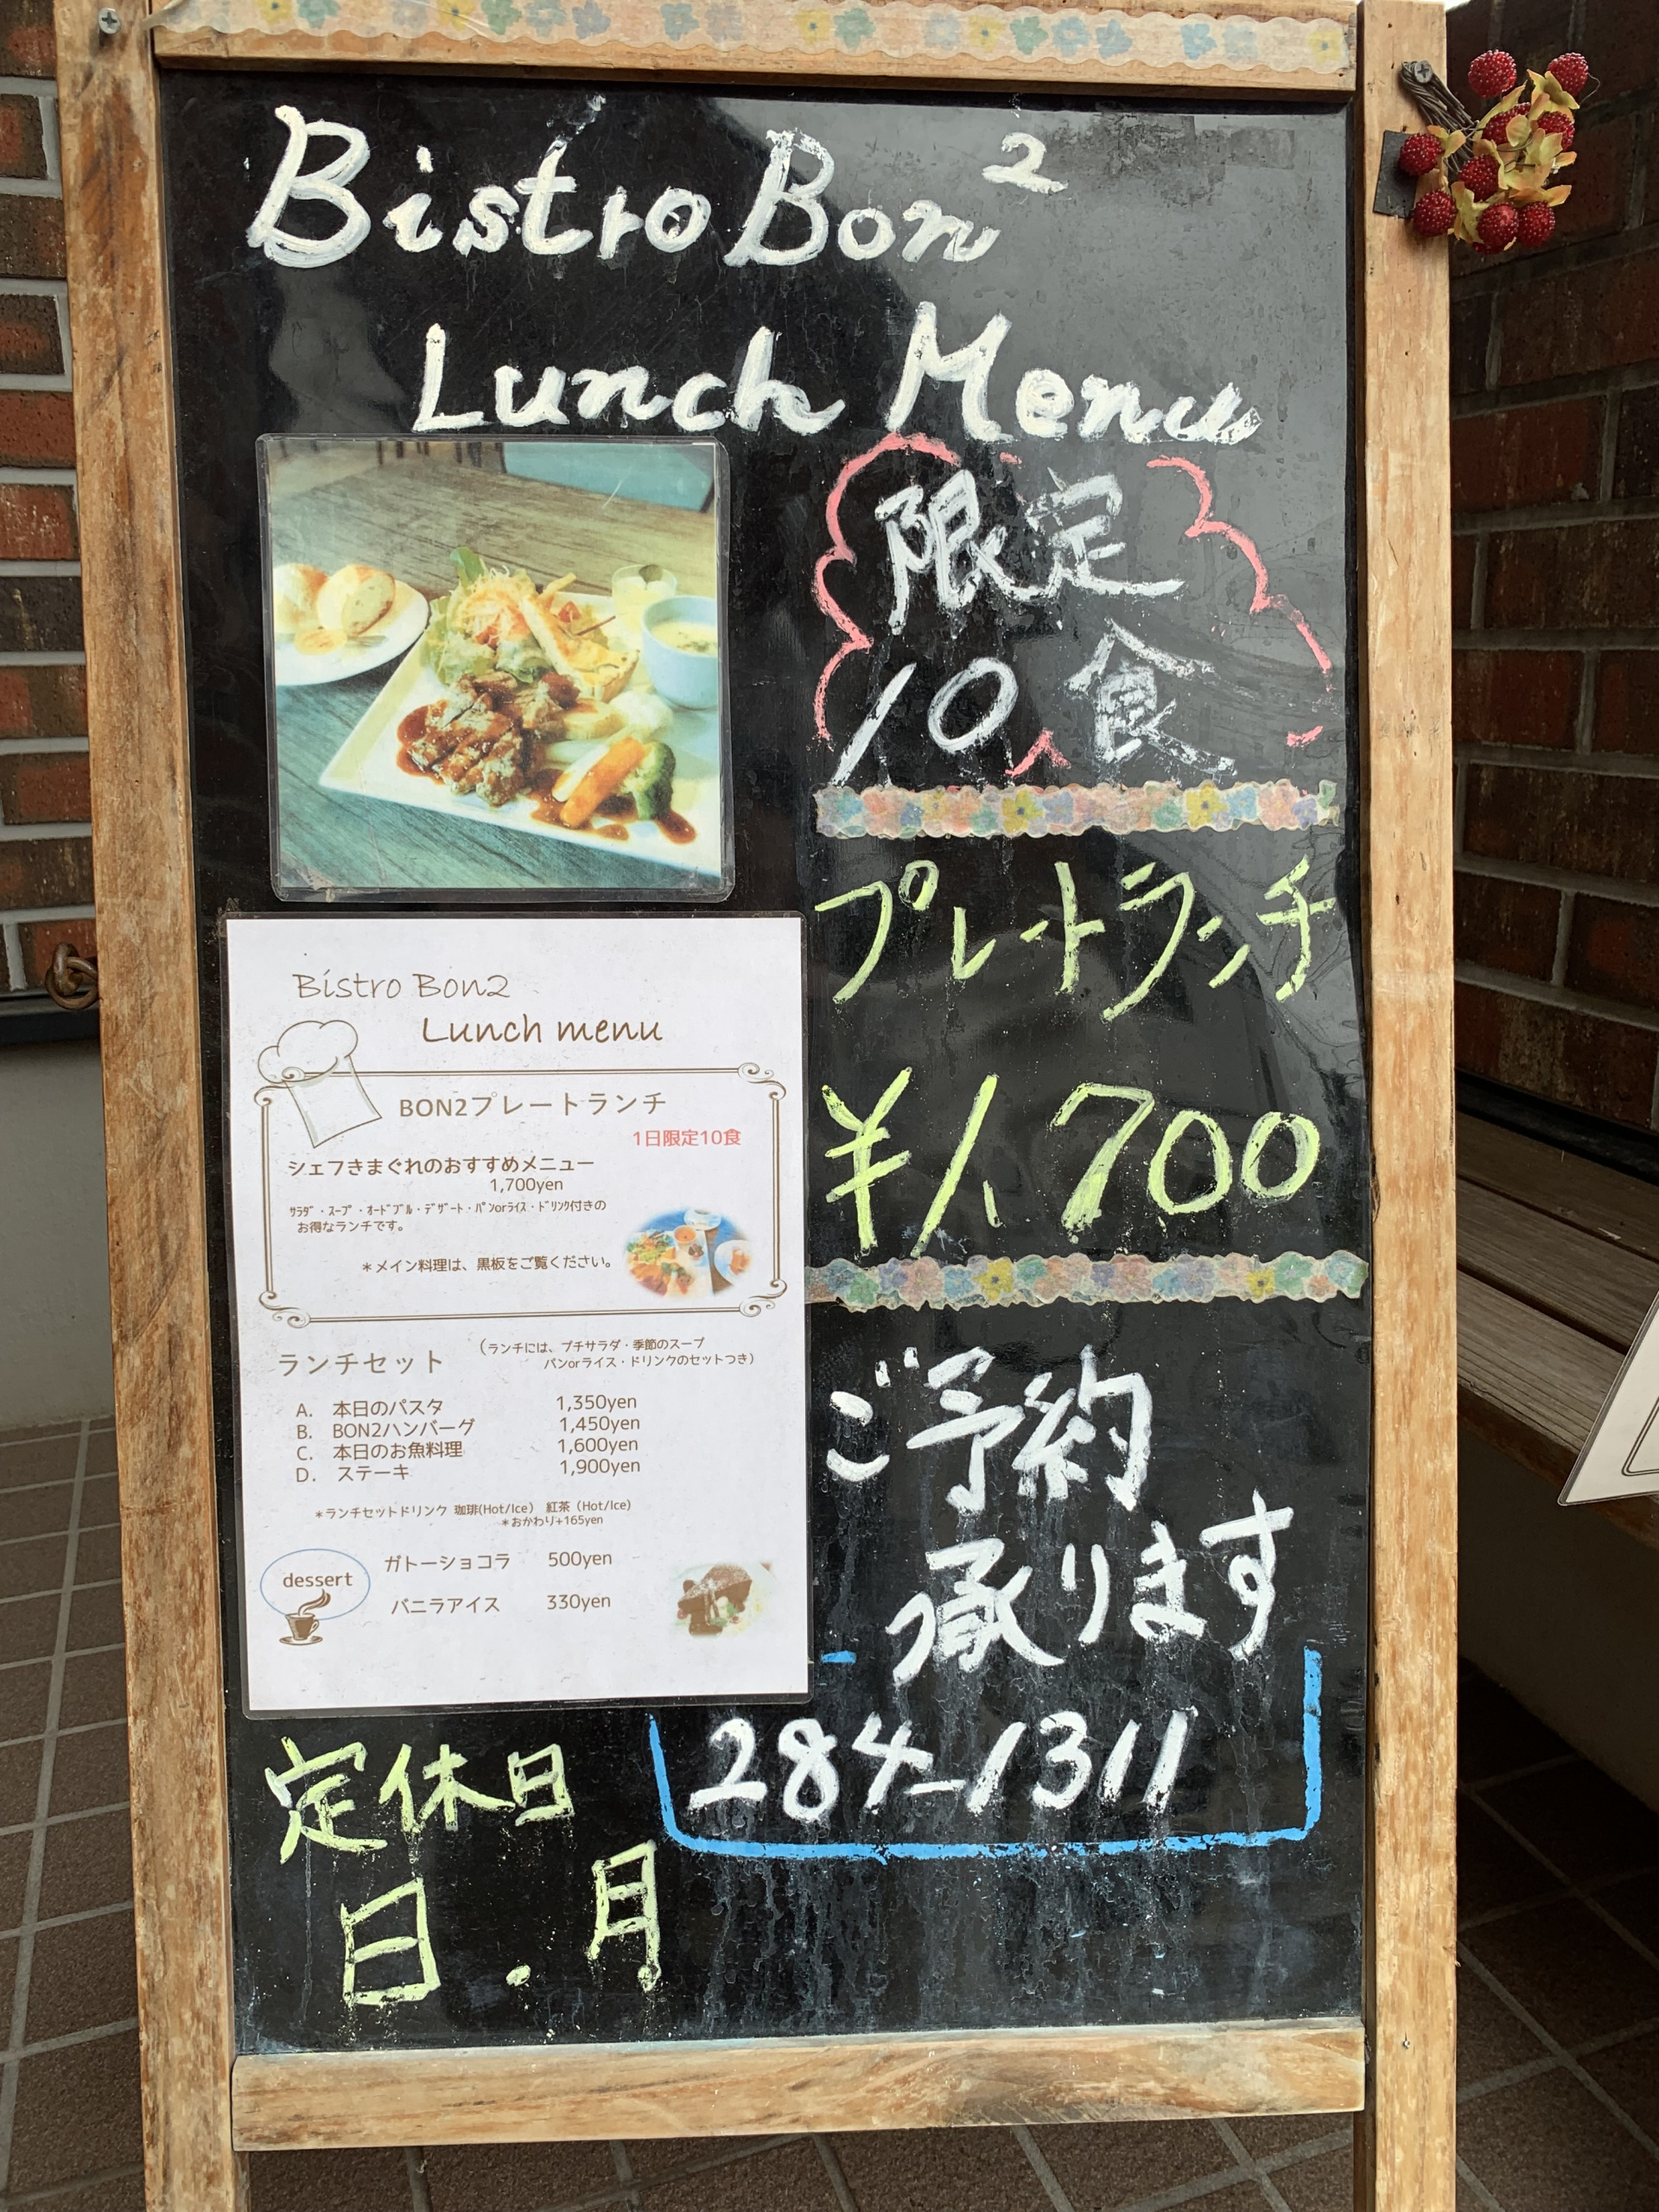 Bistro Bon²
Lunch Menu
限定
10食
プレートランチ
¥1,700
Bistro Bon2
Lunch menu
BON2プレートランチ
1日限定10食
シェフきまぐれのおすすめメニュー
1,700yen
ｻﾗﾀﾞ・ｽｰﾌﾟ・ｵｰﾄﾞﾌﾞﾙ・ﾃﾞｻﾞｰﾄ・ﾊﾟﾝorﾗｲｽ・ﾄﾞﾘﾝｸ付きの
お得なランチです。
＊メイン料理は、黒板をご覧ください。
ランチセット
（ランチには、プチサラダ・季節のスープ
パンorライス・ドリンクのセットつき）
A. 本日のパスタ 1,350yen
B. BON2ハンバーグ 1,450yen
C. 本日のお魚料理 1,600yen
D. ステーキ 1,900yen
＊ランチセットドリンク 珈琲(Hot/Ice) 紅茶（Hot/Ice)
＊おかわり+165yen
dessert
ガトーショコラ 500yen
バニラアイス 330yen
ご予約
承ります
284-1311
定休日
日.月